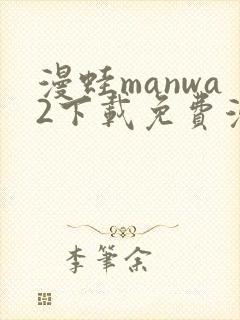 漫蛙manwa
2下載免費
李筆余